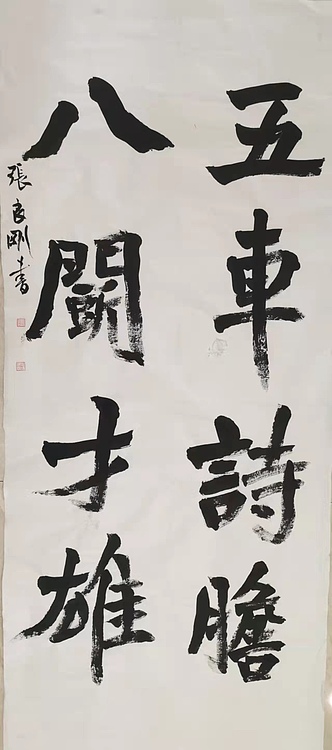 五車詩膽
八鬪才雄
張良剛書